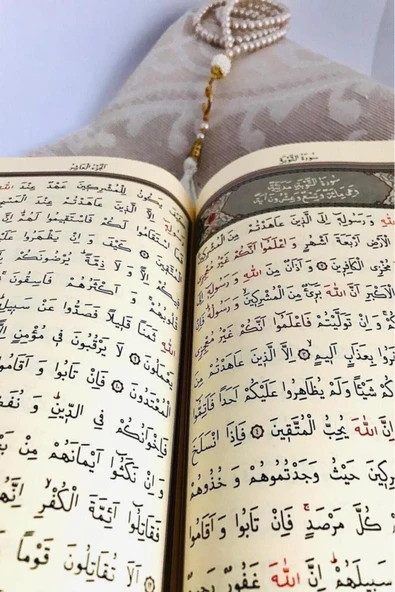 سُورَةُ التَّوْبَةِ
سُورَةُ التَّوْبَةِ مَدَنِيَّةٌ
اللّٰهِ وَرَسُولِهِ اِلَى الَّذِينَ عَاهَدْتُمْ مِنَ الْمُشْرِكِينَ
الْاَرْضِ اَرْبَعَةَ اَشْهُرٍ وَاعْلَمُوا اَنَّكُمْ غَيْرُ مُعْجِزِي
مُخْزِي الْكَافِرِينَ ۝ وَ اَذَانٌ مِنَ اللّٰهِ وَ رَسُولِهِ
الْاَكْبَرِ اَنَّ اللّٰهَ بَرِيءٌ مِنَ الْمُشْرِكِينَ وَ رَسُولُهُ فَاِنْ
وَ اِنْ تَوَلَّيْتُمْ فَاعْلَمُوا اَنَّكُمْ غَيْرُ مُعْجِزِي
بِعَذَابٍ اَلِيمٍ ۝ اِلَّا الَّذِينَ عَاهَدْتُمْ مِنَ
شَيْئًا وَلَمْ يُظَاهِرُوا عَلَيْكُمْ اَحَدًا فَاَتِمُّوا
اِنَّ اللّٰهَ يُحِبُّ الْمُتَّقِينَ ۝ فَاِذَا انْسَلَخَ
حَيْثُ وَجَدْتُمُوهُمْ وَ خُذُوهُمْ
كُلَّ مَرْصَدٍ فَاِنْ تَابُوا وَ اَقَامُوا
سَبِيلَهُمْ اِنَّ اللّٰهَ غَفُورٌ رَحِيمٌ
اَلْجُزْءُ الْعَاشِرُ
يَكُونُ لِلْمُشْرِكِينَ عَهْدٌ عِنْدَ اللّٰهِ
اِلَّا الَّذِينَ عَاهَدْتُمْ عِنْدَ الْمَسْجِدِ
اسْتَقَامُوا لَكُمْ فَاسْتَقِيمُوا لَهُمْ اِنَّ
الْمُتَّقِينَ ۝ كَيْفَ وَ اِنْ يَظْهَرُوا عَلَيْكُمْ
فِيكُمْ اِلًّا وَ لَا ذِمَّةً يُرْضُونَكُمْ
قُلُوبُهُمْ وَ اَكْثَرُهُمْ فَاسِقُونَ ۝
اللّٰهِ ثَمَنًا قَلِيلًا فَصَدُّوا عَنْ سَبِيلِهِ
يَعْمَلُونَ ۝ لَا يَرْقُبُونَ فِي مُؤْمِنٍ اِلًّا
الْمُعْتَدُونَ ۝ فَاِنْ تَابُوا وَ اَقَامُوا
فَاِخْوَانُكُمْ فِي الدِّينِ وَ نُفَصِّلُ
وَ اِنْ نَكَثُوا اَيْمَانَهُمْ مِنْ بَعْدِ
فَقَاتِلُوا اَئِمَّةَ الْكُفْرِ اِنَّهُمْ
۝ اَلَا تُقَاتِلُونَ قَوْمًا